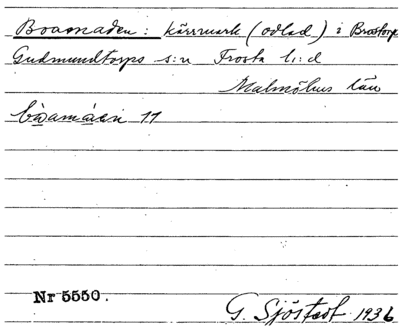 Boamaden: kärrmark (odlad) i Brostorp
Gudmundtorps s:n Frosta h:d
Malmöhus län
11
Nr 5550.
G. Sjöstedt 1936